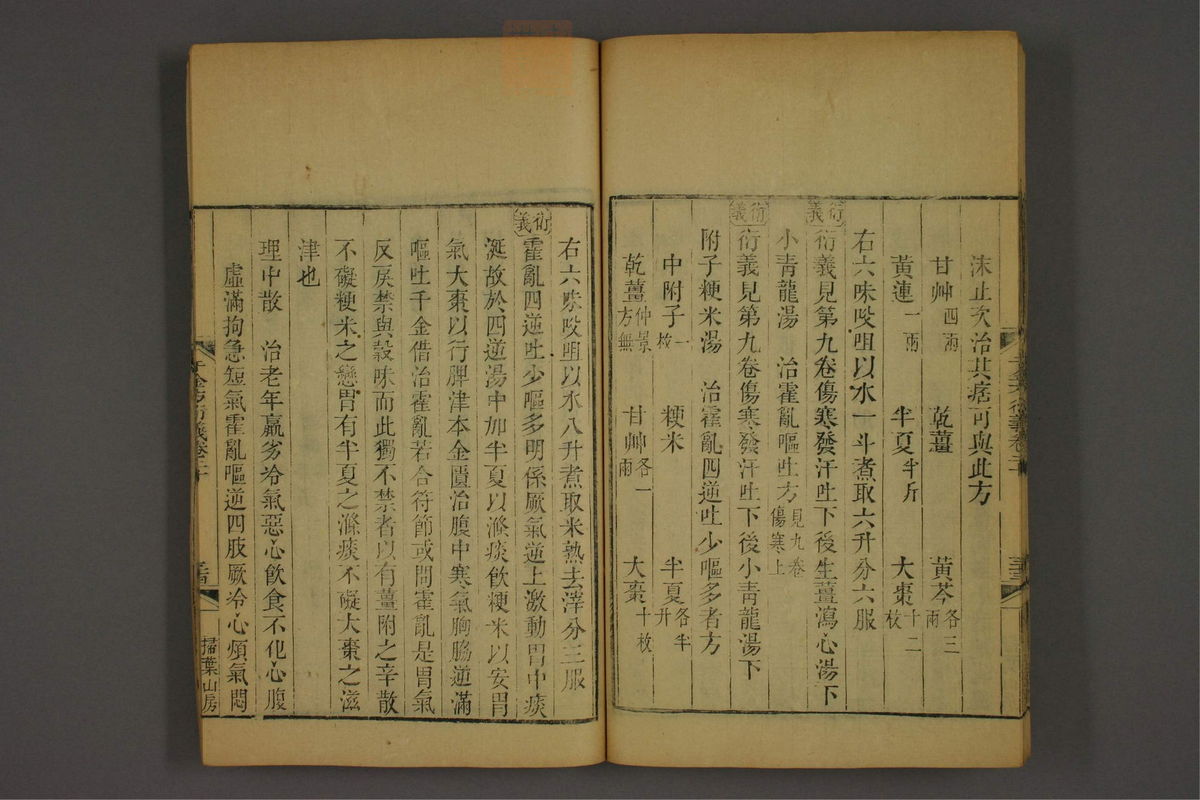 沫止次治其痞可與此方
甘艸四兩 乾薑 黃芩各三兩
黃連一兩 半夏半斤 大棗十二枚
右六味㕮咀以水一斗煮取六升分六服
衍義
衍義見第九卷傷寒發汗吐下後生薑瀉心湯下
小青龍湯 治霍亂嘔吐方見九卷傷寒上
衍義
衍義見第九卷傷寒發汗吐下後小青龍湯下
附子粳米湯 治霍亂四逆吐少嘔多者方
中附子一枚 粳米 半夏各半升
乾薑仲景方無 甘艸各一兩 大棗十枚
右六味㕮咀以水八升煮取米熟去滓分三服
衍義
霍亂四逆吐少嘔多明係厥氣逆上激動胃中痰
涎故於四逆湯中加半夏以滌痰飲粳米以安胃
氣大棗以行脾津本金匱治腹中寒氣胸脇逆滿
嘔吐千金借治霍亂若合符節或問霍亂是胃氣
反戾禁與穀味而此獨不禁者以有薑附之辛散
不礙粳米之戀胃有半夏之滌痰不礙大棗之滋
津也
理中散 治老年羸劣冷氣惡心飲食不化心腹
虛滿拘急短氣霍亂嘔逆四肢厥冷心煩氣悶
千金方衍義卷二十
掃葉山房